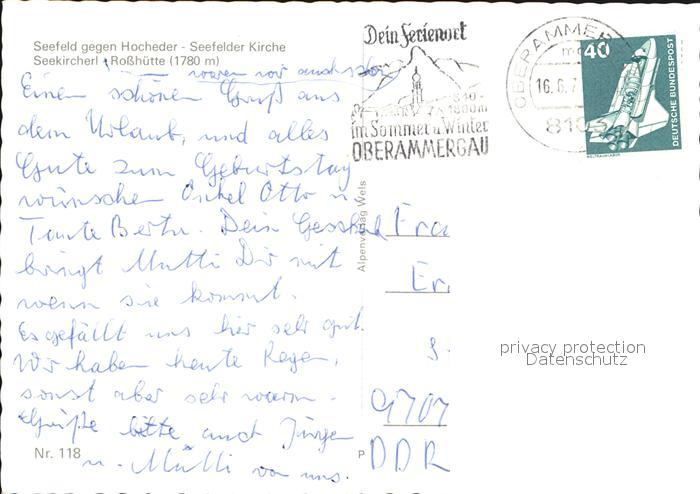 Seefeld gegen Hocheder - Seefelder Kirche
Seekircherl, Roßhütte (1780 m)
waren wir auch schon
Einen schönen Gruß aus
dem Urlaub, und alles
Gute zum Geburtstag
wünschen Onkel Otto u.
Tante Berta. Dein Geschenk
bringt Mutti Dir mit
wenn sie kommt.
Es gefällt uns hier sehr gut.
Wir haben heute Regen,
sonst aber sehr warm.
Grüße bitte auch Jürgen
u. Mutti von uns.
Nr. 118
Alpenverlag Wels
Dein Ferienort
im Sommer u Winter
OBERAMMERGAU
OBERAMMER
16. 6. 7
8103
40
DEUTSCHE BUNDESPOST
WELTRAUMLABOR
Fra
Er
9707
P
DDR
privacy protection
Datenschutz